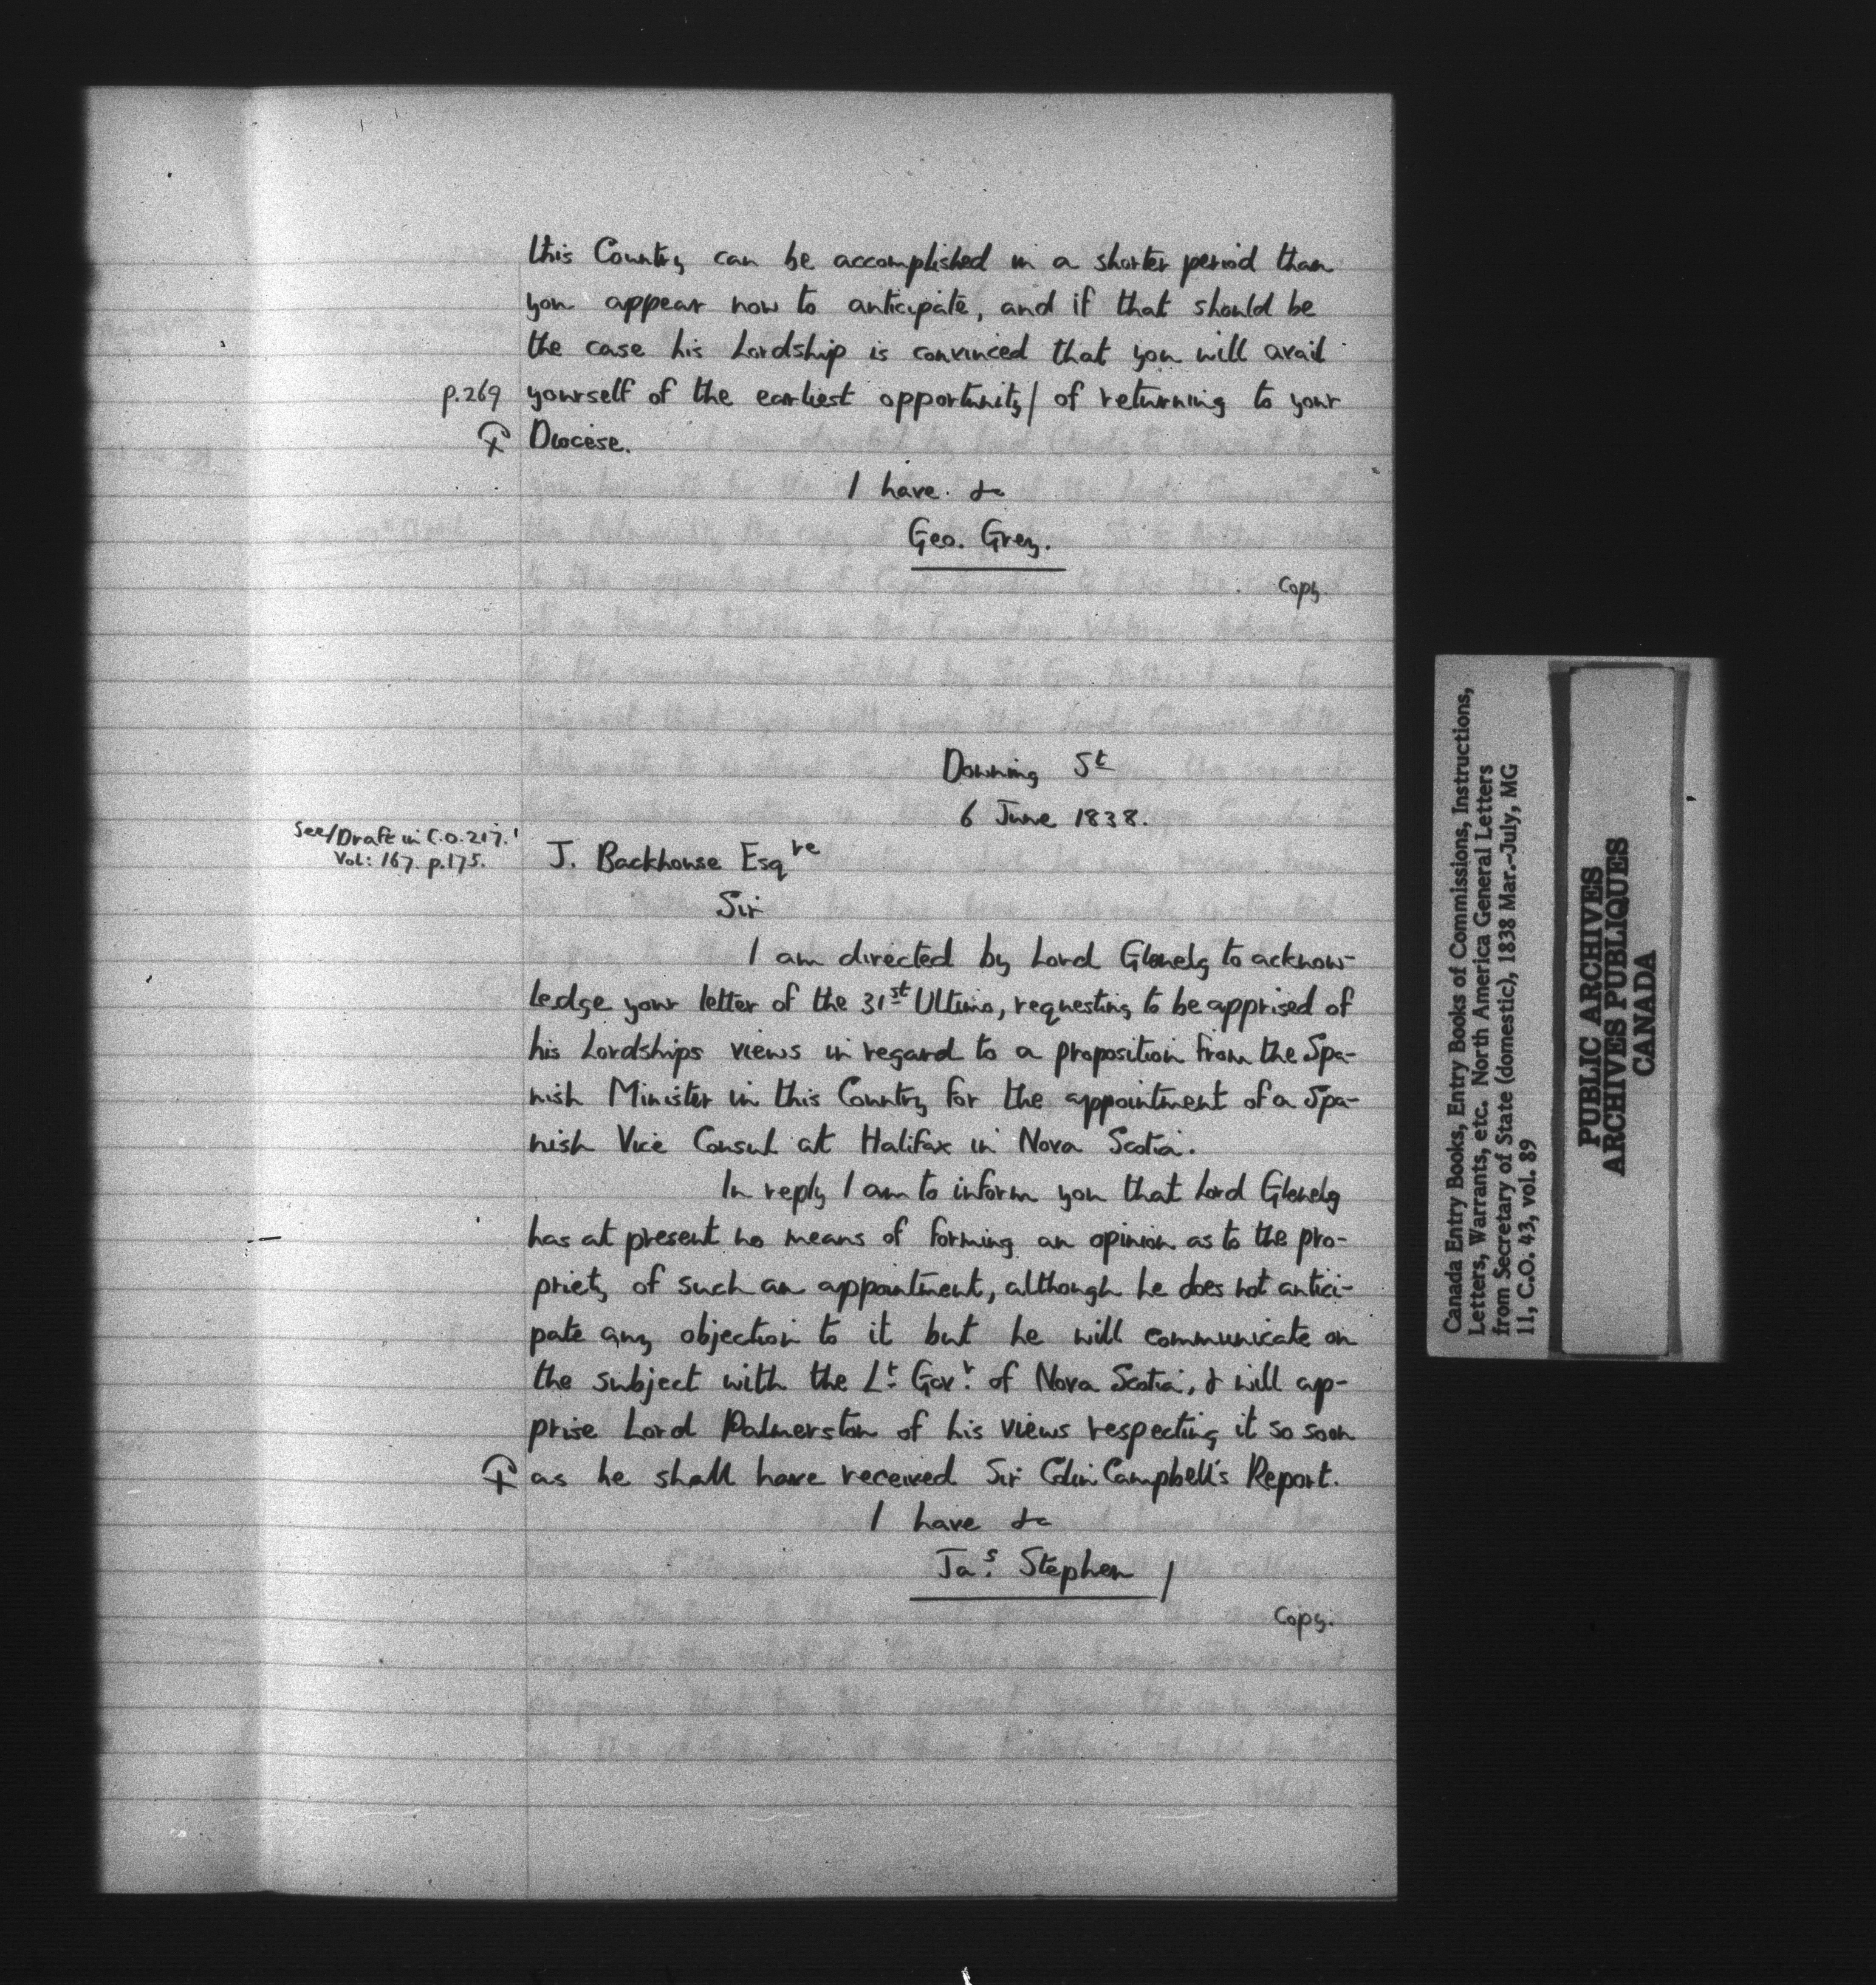 this Country can be accomplished in a shorter period than
you appear now to anticipate, and if that should be
the case his Lordship is convinced that you will avail
p.269 yourself of the earliest opportunity/ of returning to your
Diocese.
I have &c
Geo. Grey.
Copy
Downing St
6 June 1838.
See/Draft in C.O.217.
Vol: 167. p.175.
J. Backhouse Esqre
Sir
I am directed by Lord Glenelg to acknow-
ledge your letter of the 31st Ultimo, requesting to be apprised of
his Lordships views in regard to a proposition from the Spa-
nish Minister in this Country for the appointment of a Spa-
nish Vice Consul at Halifax in Nova Scotia.
In reply I am to inform you that Lord Glenelg
has at present no means of forming an opinion as to the pro-
priety of such an appointment, although he does not antici-
pate any objection to it but he will communicate on
the subject with the Lt. Govr. of Nova Scotia, & will ap-
prise Lord Palmerston of his views respecting it so soon
as he shall have received Sir Colin Campbell's Report.
I have &c
Jas. Stephen /
Copy.
Canada Entry Books, Entry Books of Commissions, Instructions,
Letters, Warrants, etc. North America General Letters
from Secretary of State (domestic), 1838 Mar.-July, MG
11, C.O. 43, vol. 89
PUBLIC ARCHIVES
ARCHIVES PUBLIQUES
CANADA